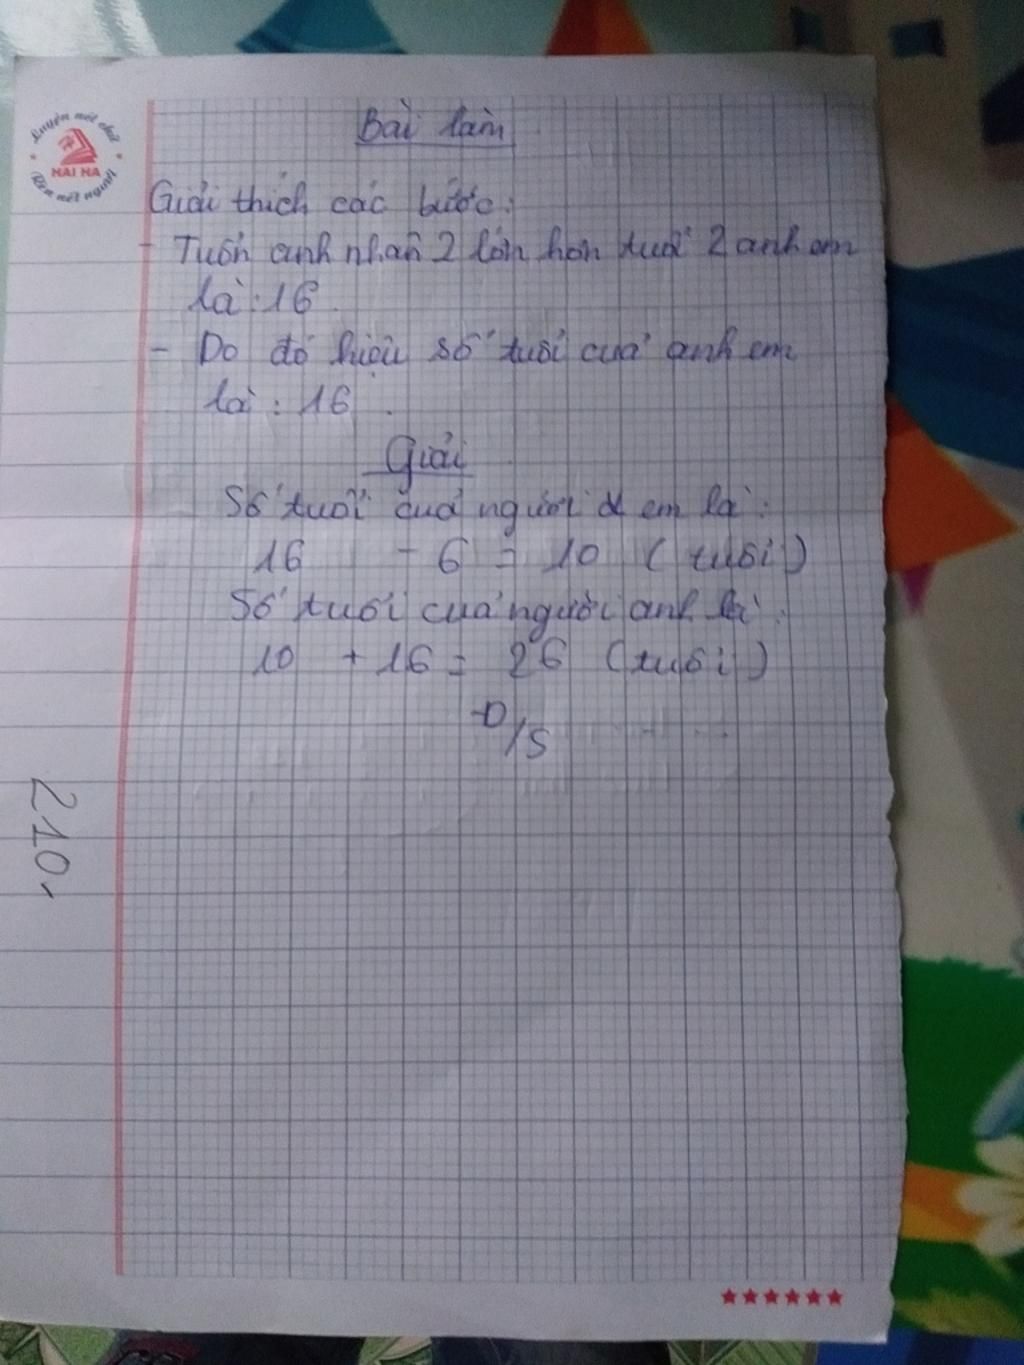 Luyện nét chữ
HẢI HÀ
Rèn nết người
Bài làm
Giải thích các bước:
- Tuổn anh nhân 2 lớn hơn tuổi 2 anh em
là : 16.
- Do đó hiệu số tuổi của anh em
là : 16.
Giải
Số tuổi của người em là :
16 - 6 = 10 (tuổi)
Số tuổi của người anh là :
10 + 16 = 26 (tuổi)
Đ/S
210